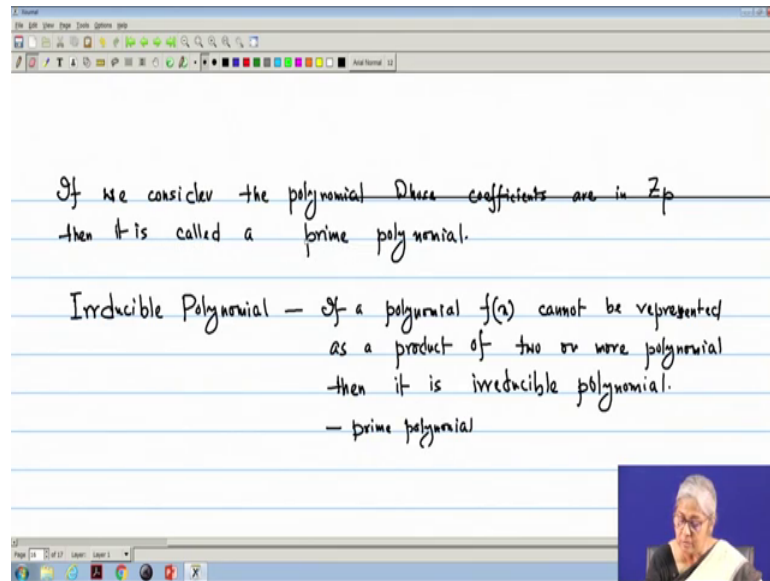 Xournal
File Edit View Page Tools Options Help
Arial Normal 12
If we consider the polynomial whose coefficients are in Zp
then it is called a prime polynomial.
Irrducible Polynomial — If a polynomial f(x) cannot be represented
as a product of two or more polynomial
then it is irreducible polynomial.
— prime polynomial
Page 16 of 17 Layer: Layer 1